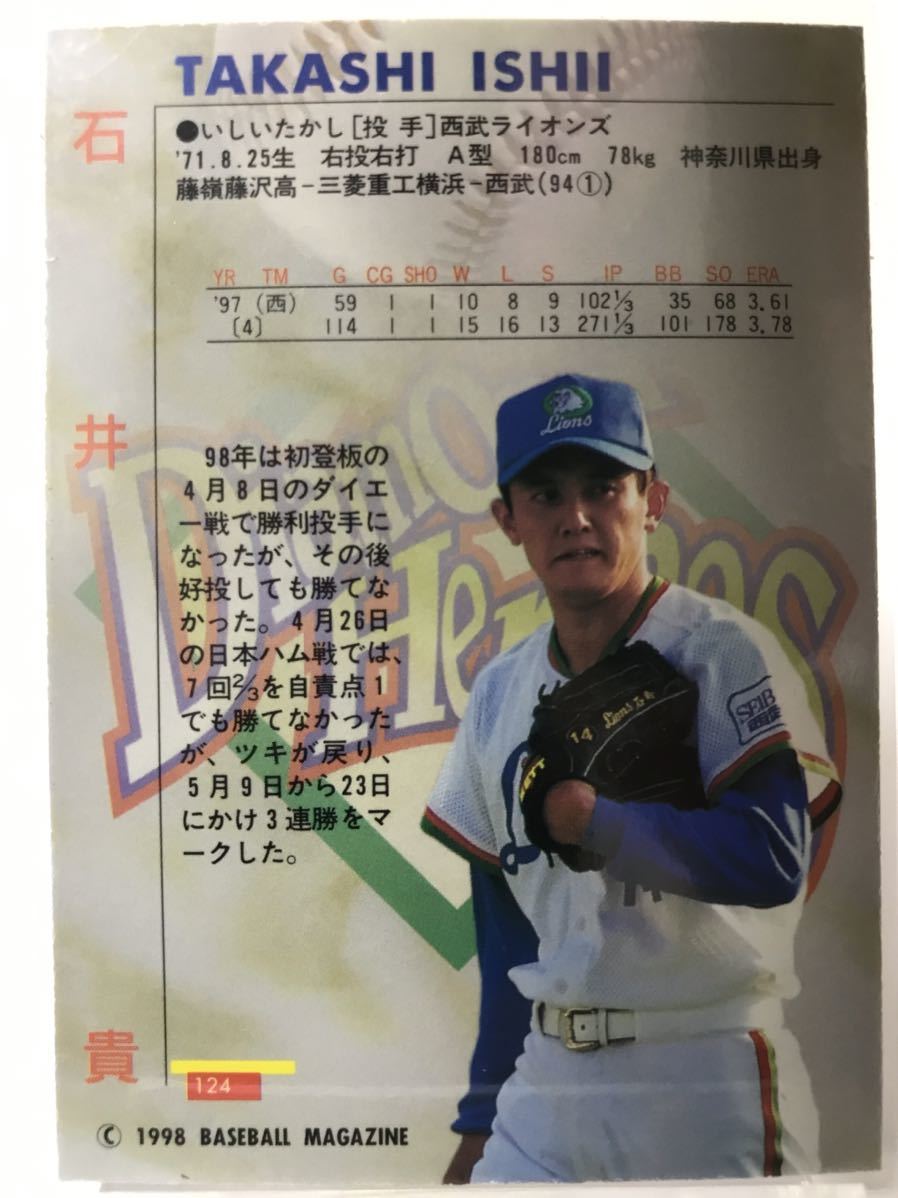 TAKASHI ISHII
石井貴
●いしいたかし[投 手]西武ライオンズ
'71.8.25生 右投右打 A型 180cm 78kg 神奈川県出身
藤嶺藤沢高-三菱重工横浜-西武(94①)
YR TM G CG SHO W L S IP BB SO ERA
'97 (西) 59 1 1 10 8 9 102⅓ 35 68 3.61
〔4〕 114 1 1 15 16 13 271⅓ 101 178 3.78
98年は初登板の
4月8日のダイエ
ー戦で勝利投手に
なったが、その後
好投しても勝てな
かった。4月26日
の日本ハム戦では、
7回⅔を自責点1
でも勝てなかった
が、ツキが戻り、
5月9日から23日
にかけ3連勝をマ
ークした。
Diamond
Heroes
Lions
14 Lions
ZETT
SEIBU
124
© 1998 BASEBALL MAGAZINE